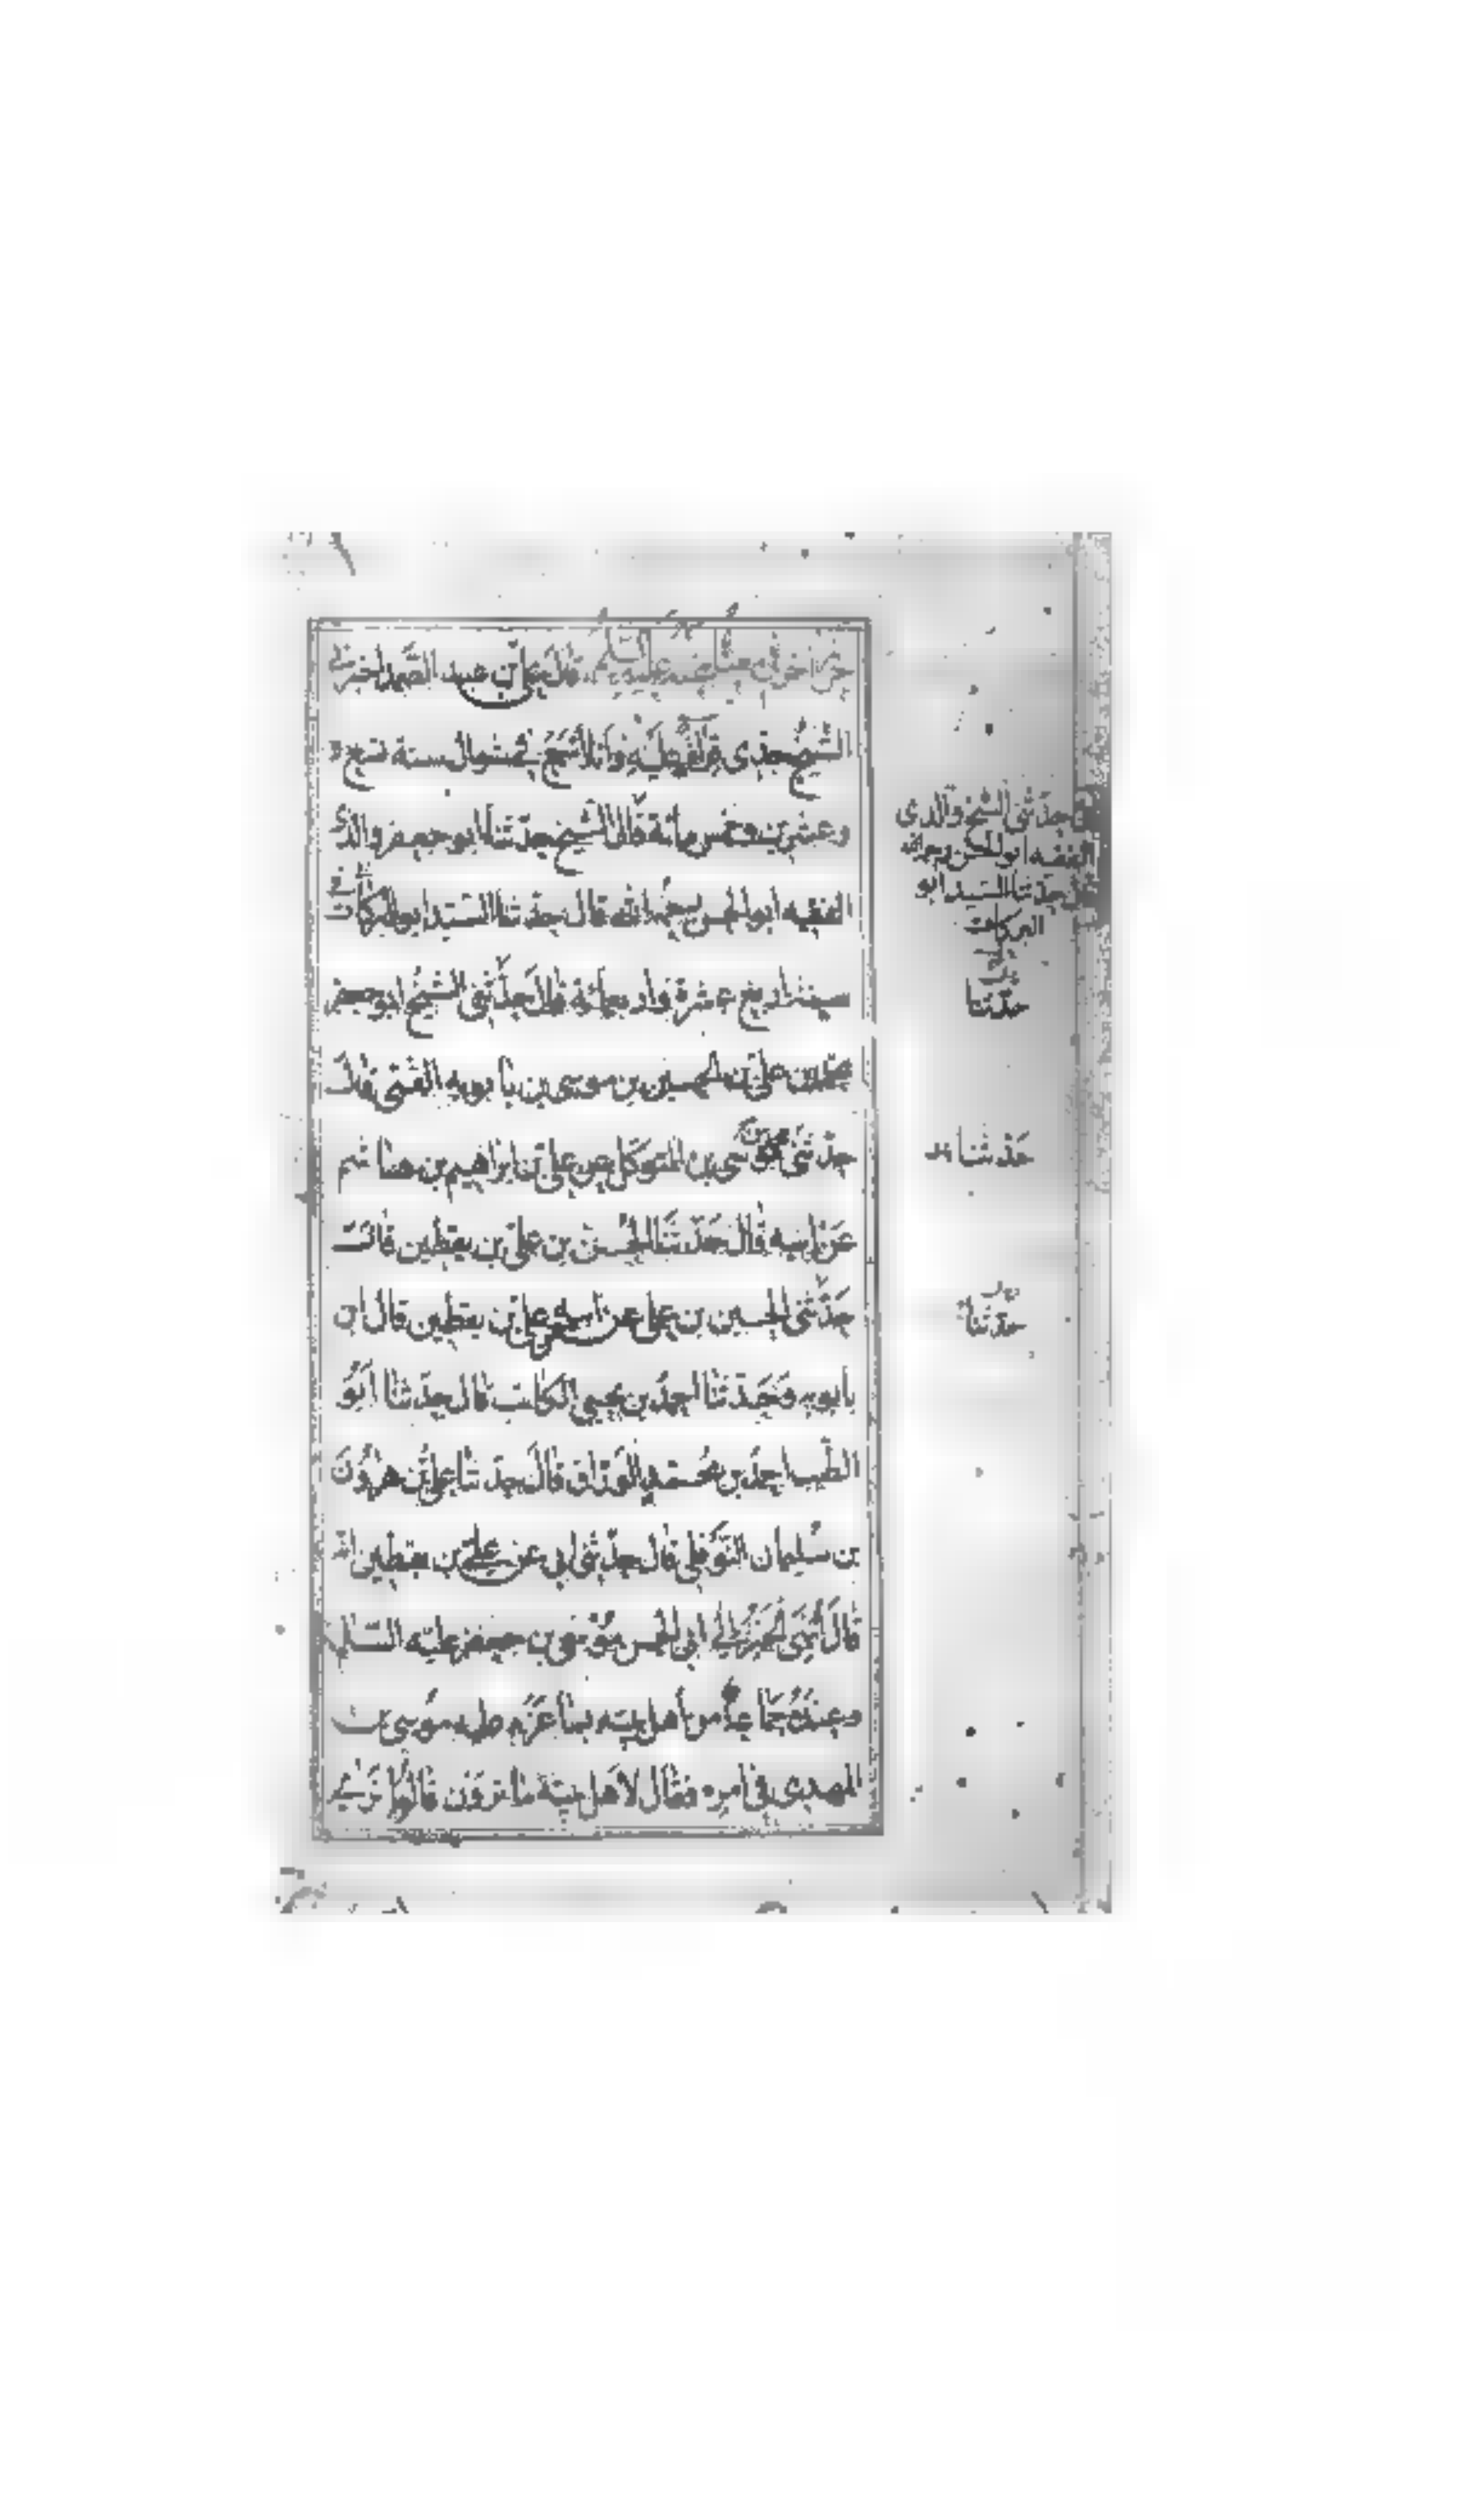 حرز اخر في معناه عنه عليه السلام قال علي بن عبد الصمد اخبرني
الشيخ جدي قراءة عليه وانا اسمع في شوال سنة تسع
وعشرين وخمس مائة قال الشيخ حدثنا ابو جعفر والدي
الفقيه ابو الحسن رحمه الله قال حدثنا السيد ابو البركات
سنة اربع عشرة واربعمائة قال حدثني الشيخ ابو جعفر
محمد بن علي بن الحسين بن موسى بن بابويه القمي قال
حدثني موسى بن المتوكل عن علي بن ابراهيم بن هاشم
عن ابيه قال حدثنا الحسن بن علي بن يقطين قال
حدثني الحسين بن علي عن ابيه علي بن يقطين قال ابن
بابويه وحدثنا احمد بن يحيى الكاتب قال حدثنا ابو
الطيب احمد بن محمد الوراق قال حدثنا علي بن هرون
بن سليمان النوفلي قال حدثني ابي عن علي بن يقطين انه
قال انمي الخبر الى ابي الحسن موسى بن جعفر عليه السلام
وعنده جماعة من اهل بيته بما عزم عليه موسى بن
المهدي في امره فقال لاهل بيته ما ترون قالوا نرى
حدثني الشيخ والدي
الفقيه ابو الحسن رحمه الله
قال حدثنا السيد ابو
البركات
حدثنا
حدثنا
حدثنا